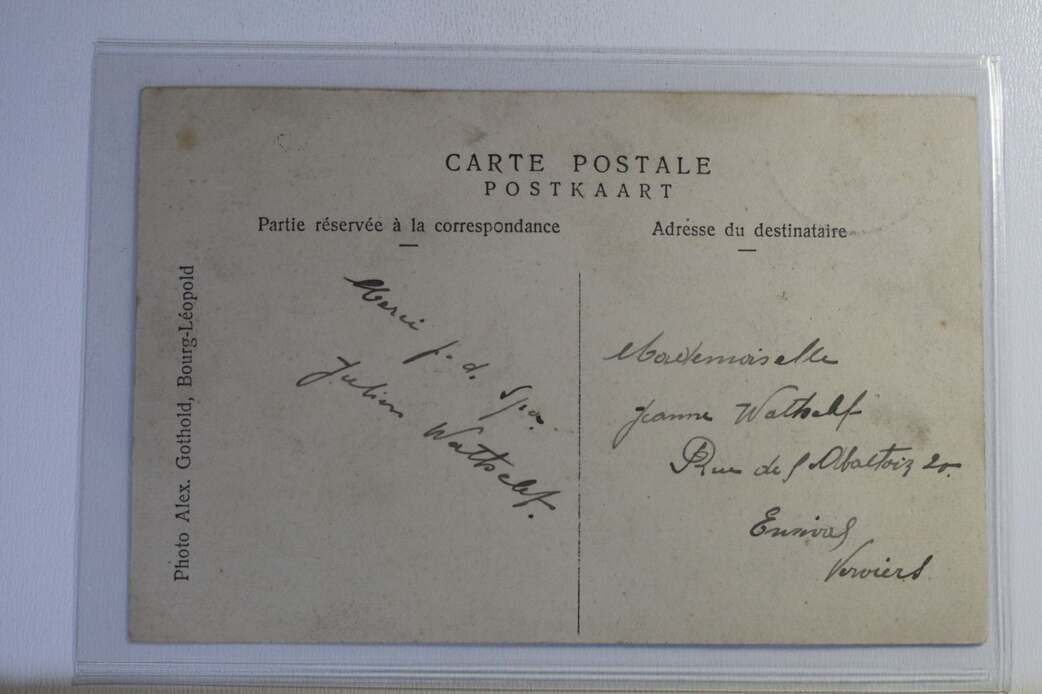 CARTE POSTALE
POSTKAART
Partie réservée à la correspondance
Adresse du destinataire
Photo Alex. Gothold, Bourg-Léopold
Merci p. d. Spa.
Julien Wathelet.
Mademoiselle
Jeanne Wathelet
Rue de l'Abattoir 20
Ensival
Verviers